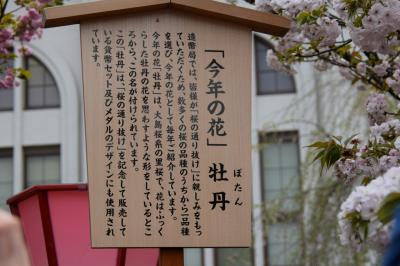 「今年の花」 牡丹
ぼたん
造幣局では、皆様が「桜の通り抜け」に親しみをもっ
ていただくため、数多くの桜の品種のうちから一品種
を選び「今年の花」として毎年ご紹介しています。
今年の花「牡丹」は、大島桜系の里桜で、花はふっく
らした牡丹の花を思わすような形をしているとこ
ろから、この名が付けられています。
この「牡丹」は、「桜の通り抜け」を記念して販売して
いる貨幣セット及びメダルのデザインにも使用され
ています。